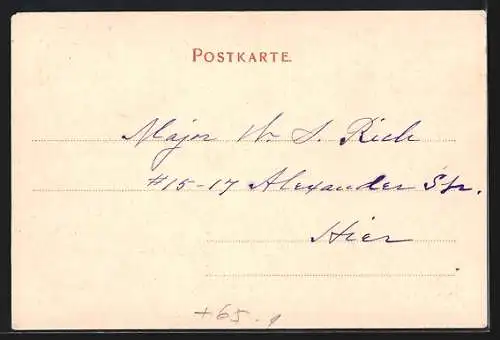 POSTKARTE.
Major W. S. Rich
#15-17 Alexander Str.
Hier
+65.